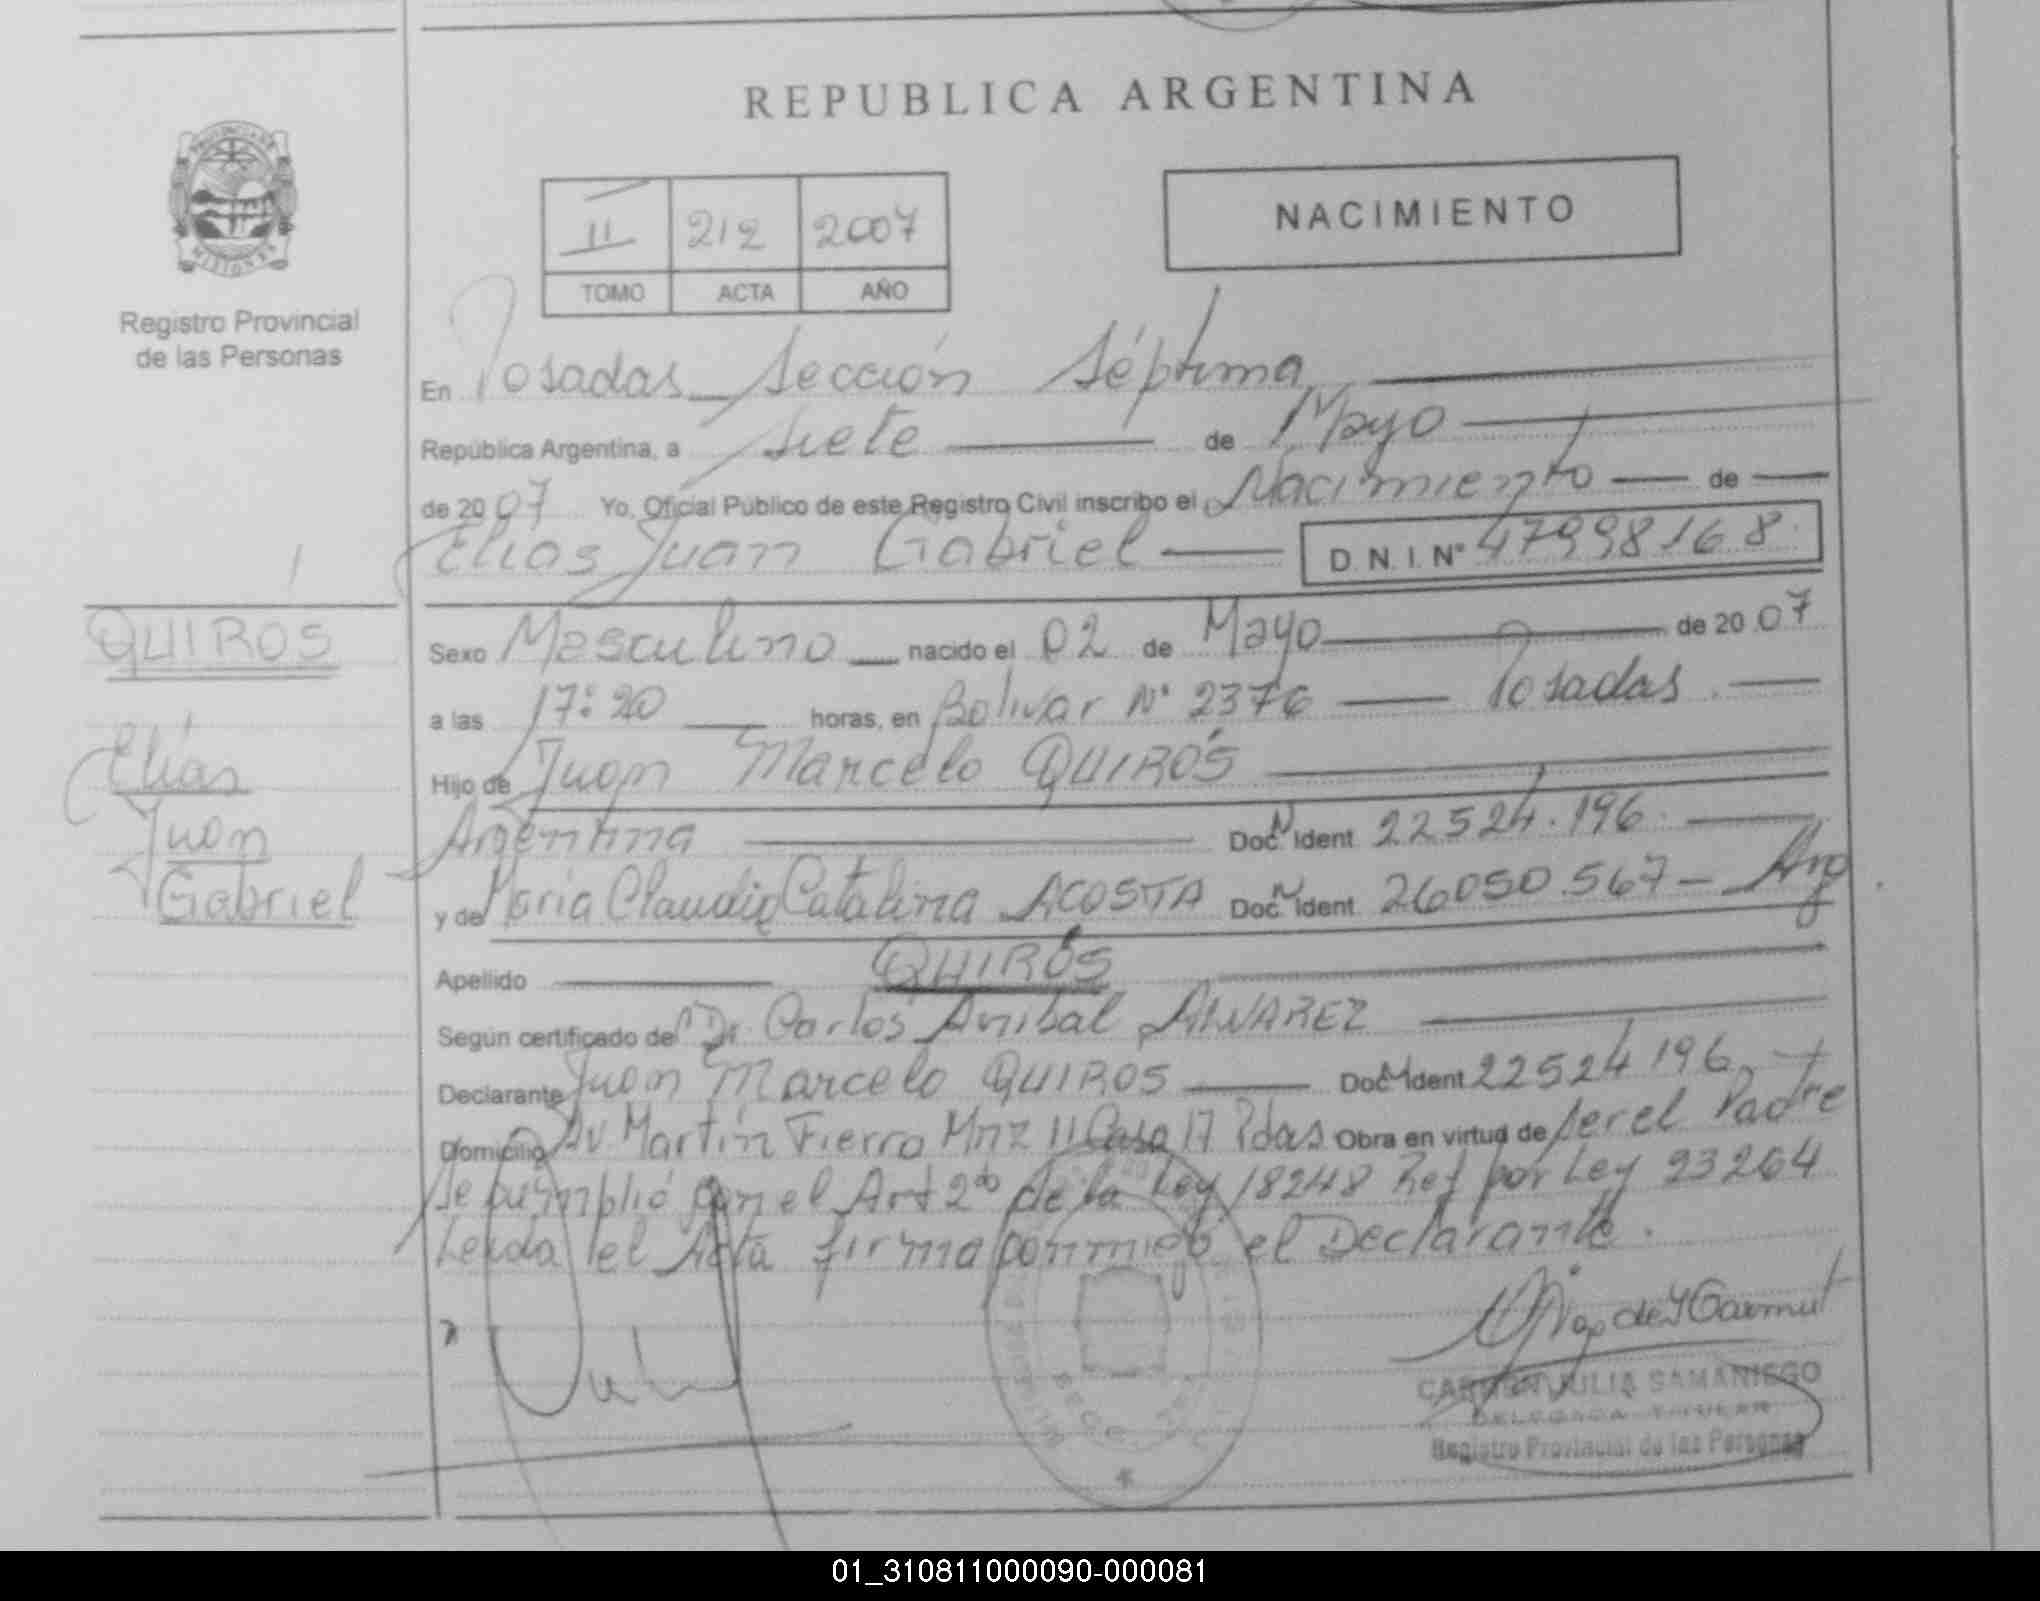 REPUBLICA ARGENTINA
PROVINCIA DE
MISIONES
Registro Provincial
de las Personas
II 212 2007
TOMO ACTA AÑO
NACIMIENTO
En Posadas Sección Séptima
República Argentina, a siete de Mayo
de 2007 Yo, Oficial Público de este Registro Civil inscribo el Nacimiento de
Elías Juan Gabriel D. N. I. Nº 47998168.
QUIROS
Elías
Juan
Gabriel
Sexo Masculino nacido el 02 de Mayo de 2007
a las 17:20 horas, en Bolivar Nº 2376 Posadas.
Hijo de Juan Marcelo QUIRÓS
Argentina Doc. N Ident 22524.196.
y de María Claudia Catalina ACOSTA Doc. N Ident 26050.567 - Arg
Apellido QUIRÓS
Según certificado de Dr. Carlos Anibal ALVAREZ
Declarante Juan Marcelo QUIROS Doc N Ident 22524196
Domicilio Av Martín Fierro Mnz 11 Casa 17 Pdas Obra en virtud de ser el Padre
Se cumplió con el Art 2do de la Ley 18248 Ref por Ley 23264
Leida el Acta firma conmigo el Declarante.
CARMEN JULIA SAMANIEGO
DELEGADA TITULAR
Registro Provincial de las Personas
01_310811000090-000081